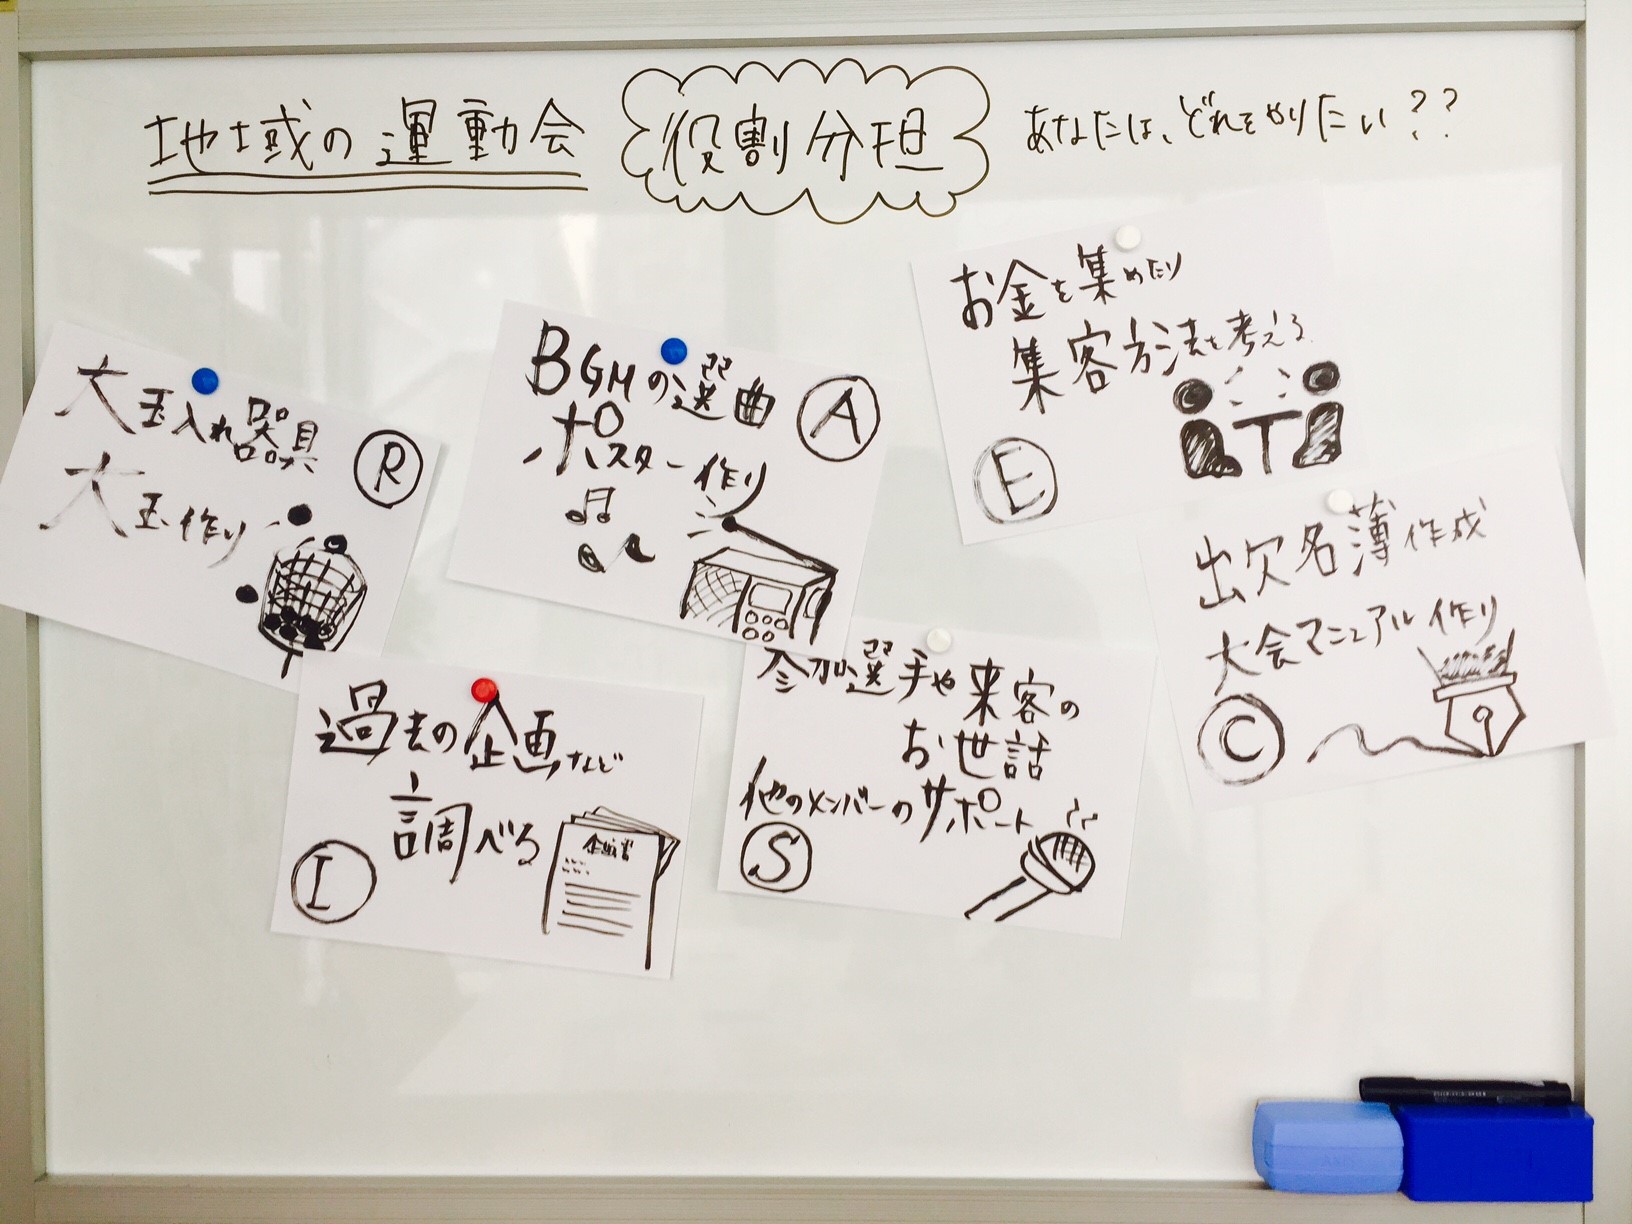 地域の運動会 役割分担 あなたは、どれをやりたい??
大玉入れ器具
大玉作り
R
BGMの選曲
ポスター作り
A
お金を集めたり
集客方法を考える
E
過去の企画など
調べる
I
企画書
参加選手や来客の
お世話
他のメンバーのサポート
S
出欠名簿作成
大会マニュアル作り
C